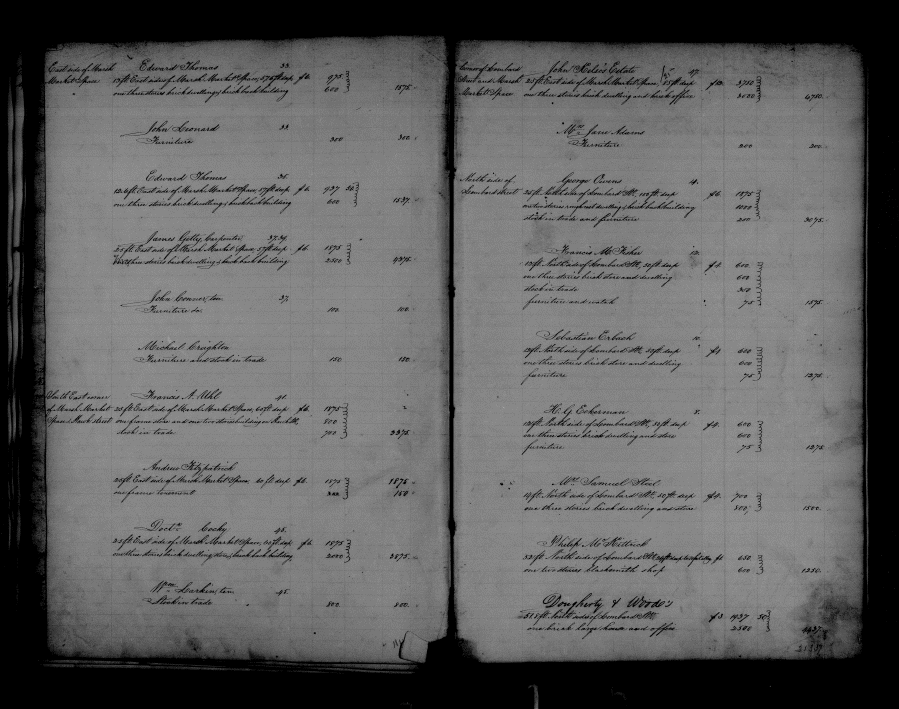 East side of Marsh Edward Thomas 33.
Market Space 13 ft East side of Marsh Market Space, 57 ft deep f 6. 975
one three stories brick dwelling & brick back building 600 1575.
John Leonard 33.
Furniture 300 300.
Edward Thomas 36.
12.6 ft East side of Marsh Market Space, 57 ft deep f 6. 937 50
one three stories brick dwelling & brick back building 600 1537.
James Getty, Carpenter 37.39.
25 ft East side of Marsh Market Space, 57 ft deep f 6. 1875
three stories brick dwelling & brick back building 2500 4375.
John Connor, ten 37.
Furniture 100. 100.
Michael Creighton
Furniture and stock in trade 150 150.
South East corner Francis A. Uhl 41.
of Marsh Market 25 ft East side of Marsh Market Space, 60 ft deep f 6. 1875
Space & street one frame store and one two stories building on 800
stock in trade 700 3375.
Andrew Fitzpatrick
25 ft East side of Marsh Market Space, 60 ft deep f 6. 1875 1875
one frame tenement 150
Doctr. Cocky 45.
25 ft East side of Marsh Market Space, 60 ft deep f 6. 1875
one three stories brick dwelling store & brick back building 2000 3875.
Wm. Larkin, ten 45.
Stock in trade 800 800.
Corner of Lombard John Kelso's Estate 47.
Street and Marsh 25 ft East side of Marsh Market Space, deep 3750
Market Space one three stories brick dwelling and brick office 3000 6750.
Mrs. Jane Adams
Furniture 200 200.
North side of George Owens 14.
Lombard Street 25 ft North side of Lombard St, deep f 6. 1875
dwelling & brick back building 1000
stock in trade and furniture 200 3075.
Francis M. Fisher 12.
12 ft North side of Lombard St, 50 ft deep f 4. 600
one three stories brick store and dwelling 600
stock in trade 300
furniture and watch 75 1575.
Sebastian Erbach 10.
12 ft North side of Lombard St, 50 ft deep f 4 600
one three stories brick store and dwelling 600
furniture 75 1275.
H. G. Eckerman 8.
12 ft North side of Lombard St, 50 ft deep f 4. 600
one three stories brick dwelling and store 600
furniture 75 1275
Mr. Samuel Steel
14 ft North side of Lombard St, 50 ft deep f 4. 700
one three stories brick dwelling and store 800 1500.
Philip
North side of Lombard St 650
one two stories blacksmith shop 600 1250.
Dougherty & Woods's
ft North side of Lombard St f 3 1937 50
one brick large house and office 2500 4437.